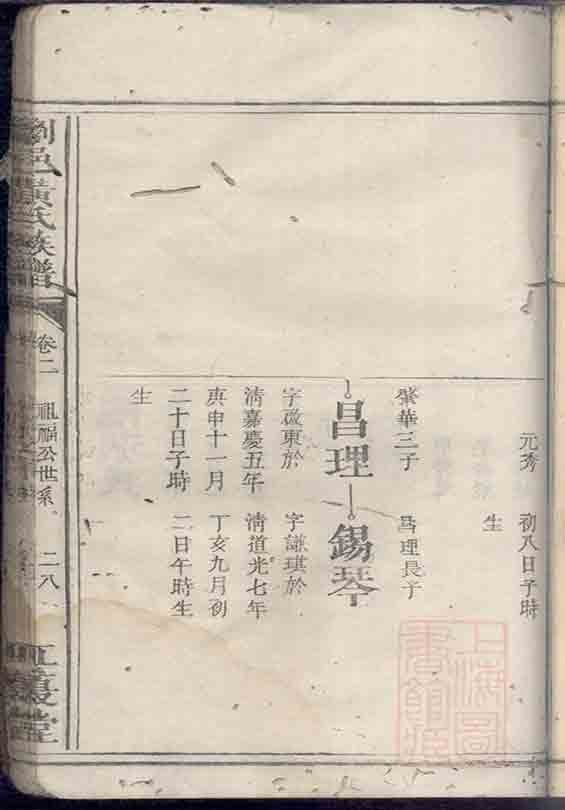 元秀
初八日子時
生
肇華三子
昌理長子
昌理
錫琴
字啟東於
字謙琪於
淸嘉慶五年
淸道光七年
庚申十一月
丁亥九月初
二十日子時
二日午時生
生
劉邑黃氏族譜
卷二
祖福公世系
二八
上海圖書館藏